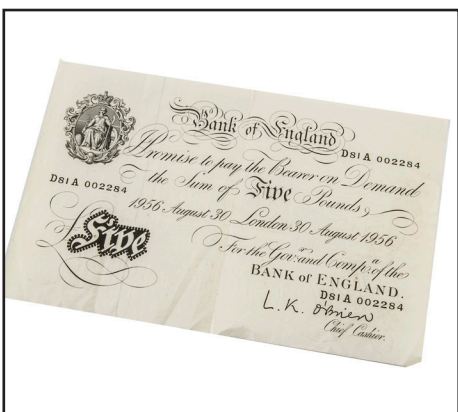 Bank of England
D81A 002284
I Promise to pay the Bearer on Demand
the Sum of Five Pounds
D81A 002284
1956 August 30 London 30 August 1956
Five
For the Govr. and Compa. of the
BANK of ENGLAND.
D81A 002284
L.K. O'Brien
Chief Cashier.